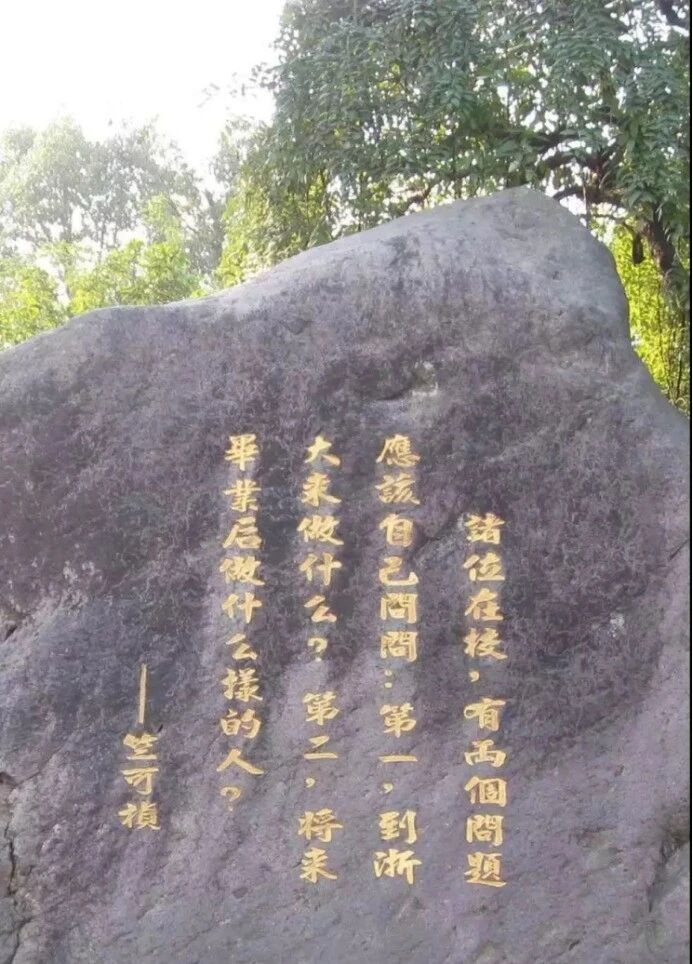 諸位在校，有两個問題
應該自己問問：第一，到浙
大来做什么？第二，将来
畢業后做什么樣的人？
——竺可禎